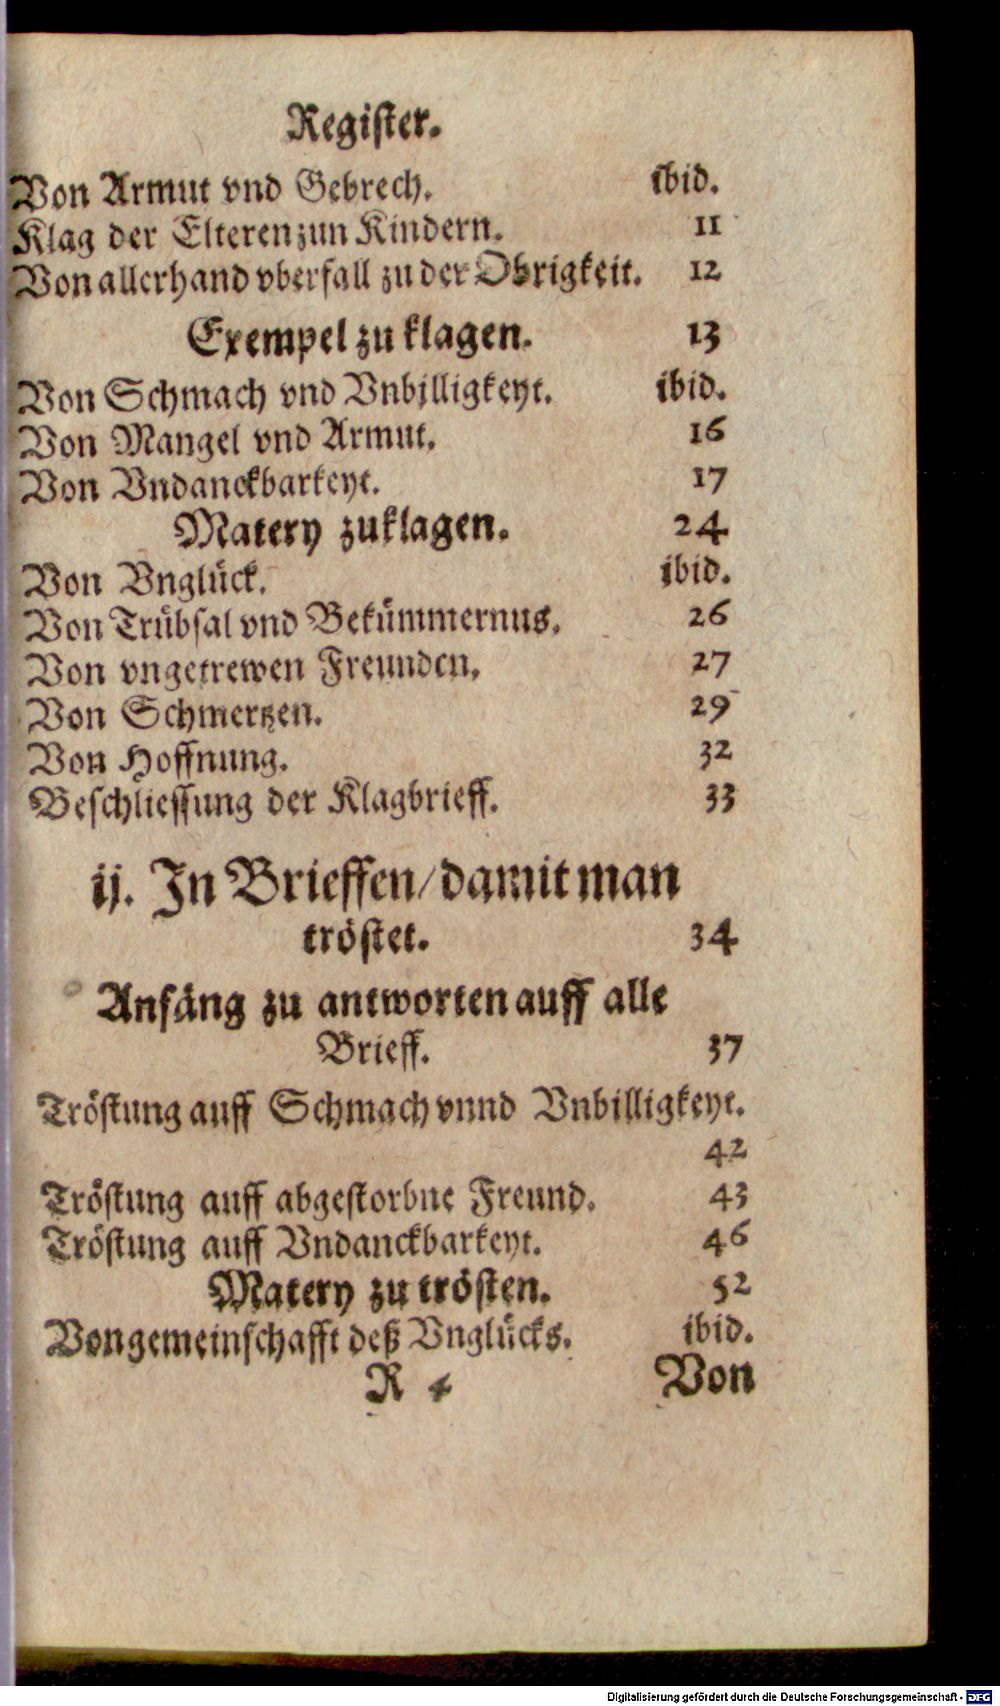 Register.
Von Armut vnd Gebrech. ibid.
Klag der Elteren zun Kindern. 11
Von allerhand vberfall zu der Obrigkeit. 12
Exempel zu klagen. 13
Von Schmach vnd Vnbilligkeyt. ibid.
Von Mangel vnd Armut. 16
Von Vndanckbarkeyt. 17
Matery zuklagen. 24
Von Vnglück. ibid.
Von Trübsal vnd Bekümmernus. 26
Von vngetrewen Freunden. 27
Von Schmertzen. 29
Von Hoffnung. 32
Beschliessung der Klagbrieff. 33
ij. In Brieffen/damit man
tröstet. 34
Anfäng zu antworten auff alle
Brieff. 37
Tröstung auff Schmach vnnd Vnbilligkeyt.
42
Tröstung auff abgestorbne Freund. 43
Tröstung auff Vndanckbarkeyt. 46
Matery zu trösten. 52
Von gemeinschafft deß Vnglücks. ibid.
R 4 Von
Digitalisierung gefördert durch die Deutsche Forschungsgemeinschaft - DFG